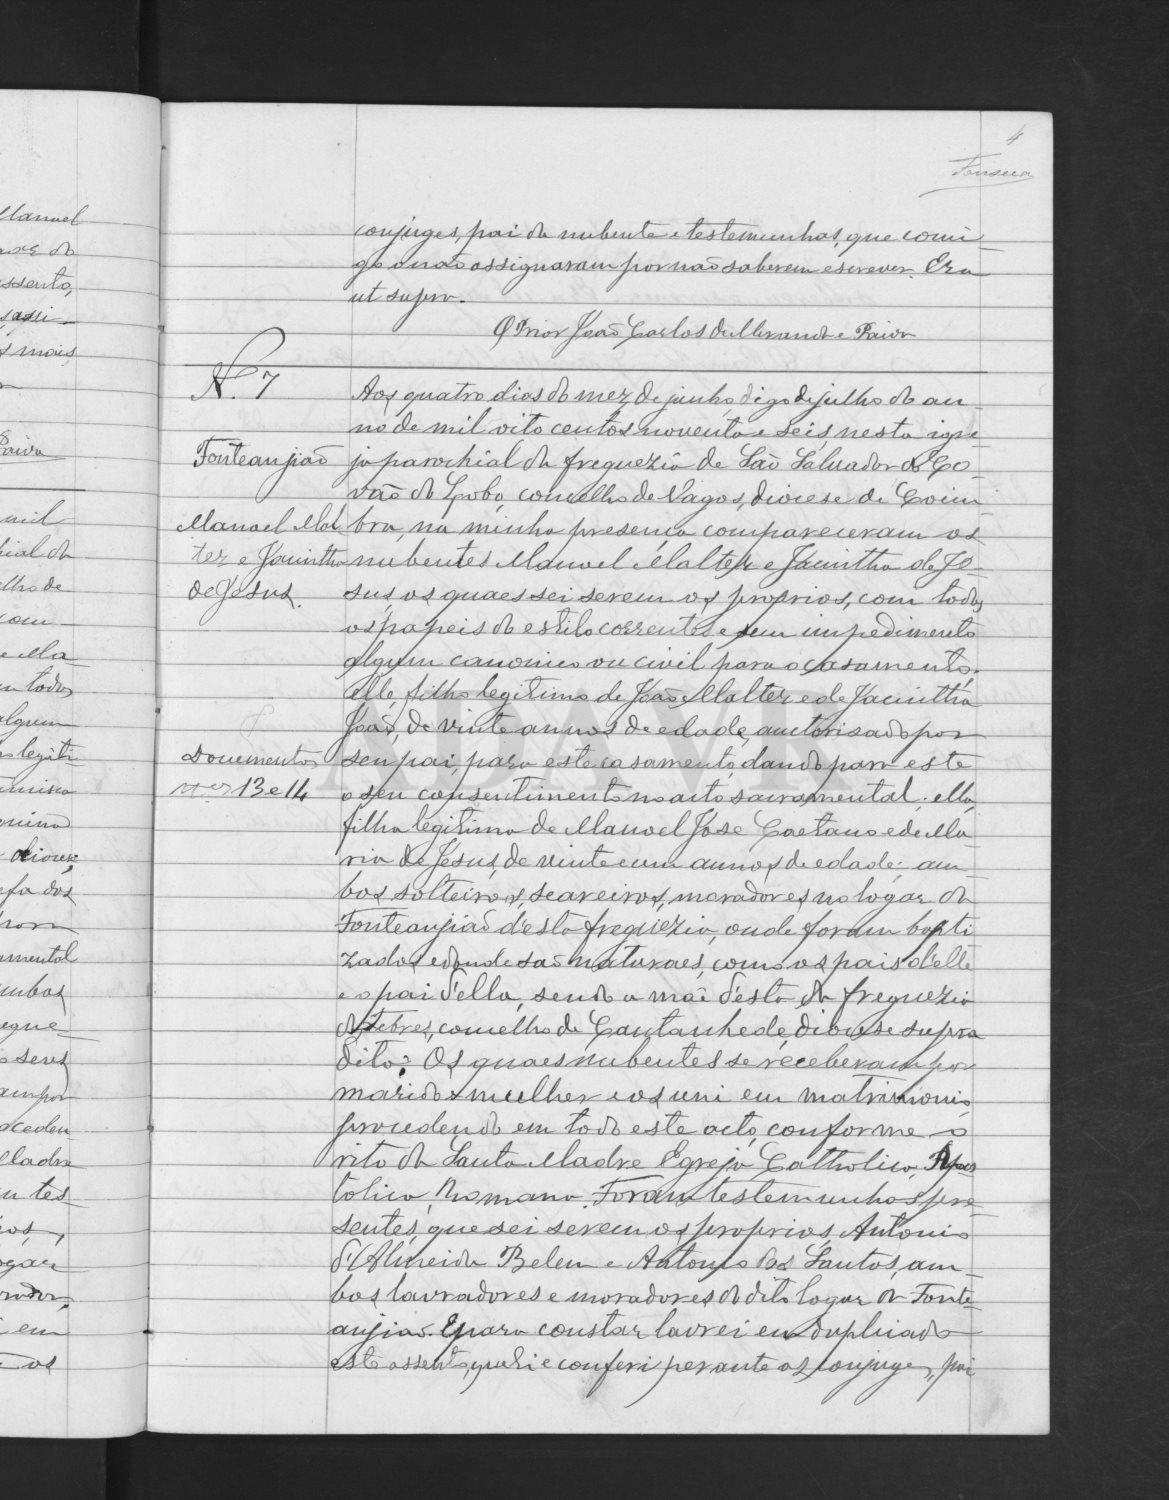 4
Fonseca
conjuges, pai da nubente e testemunhas, que comi-
go o não assignaram por não saberem escrever. Era
ut supra.
O Prior João Carlos de Miranda e Paiva
N.º 7
Fonteanjião
Manoel Mal
ter e Jacintha
de Jesus.
Documentos
nos 13 e 14
Aos quatro dias do mez de junho, digo de julho do an-
no de mil oito centos noventa e seis, nesta igre
ja parochial da freguezia de São Salvador do Co-
vão do Lobo, concelho de Vagos, diocese de Coim-
bra, na minha presença compareceram os
nubentes Manoel Malter e Jacintha de Je-
sus, os quaes sei serem os proprios, com todos
os papeis do estilo correntes, e sem impedimento
algum canonico ou civil para o casamento;
elle, filho legitimo de João Malter e de Jacintha
João, de vinte annos de edade, auctorisado por
seu pai, para este casamento, dando para este
o seu consentimento no acto sacramental; ella,
filha legitima de Manoel José Caetano e de Ma
ria de Jesus, de vinte e um annos de edade; am-
bos solteiros, seareiros, moradores no logar da
Fonteanjião d'esta freguezia, onde foram bapti
zados e donde são naturaes, como os pais d'elle
e o pai d'ella, sendo a mãe d'esta da freguezia
de Febres, concelho de Cantanhede, diocese supra
dita; Os quaes nubentes se receberam por
marido e mulher e os uni em matrimonio,
procedendo em todo este acto, conforme o
rito da Santa Madre Egreja Catholica, Apos
tolica, Romana. Foram testemunhas pre-
sentes, que sei serem os proprios, Antonio
d'Almeida Belem e Antonio dos Santos, am-
bos lavradores e moradores do dito logar da Fonte-
anjião. E para constar lavrei em duplicado
este assento, que li e conferi perante os conjuges, pai